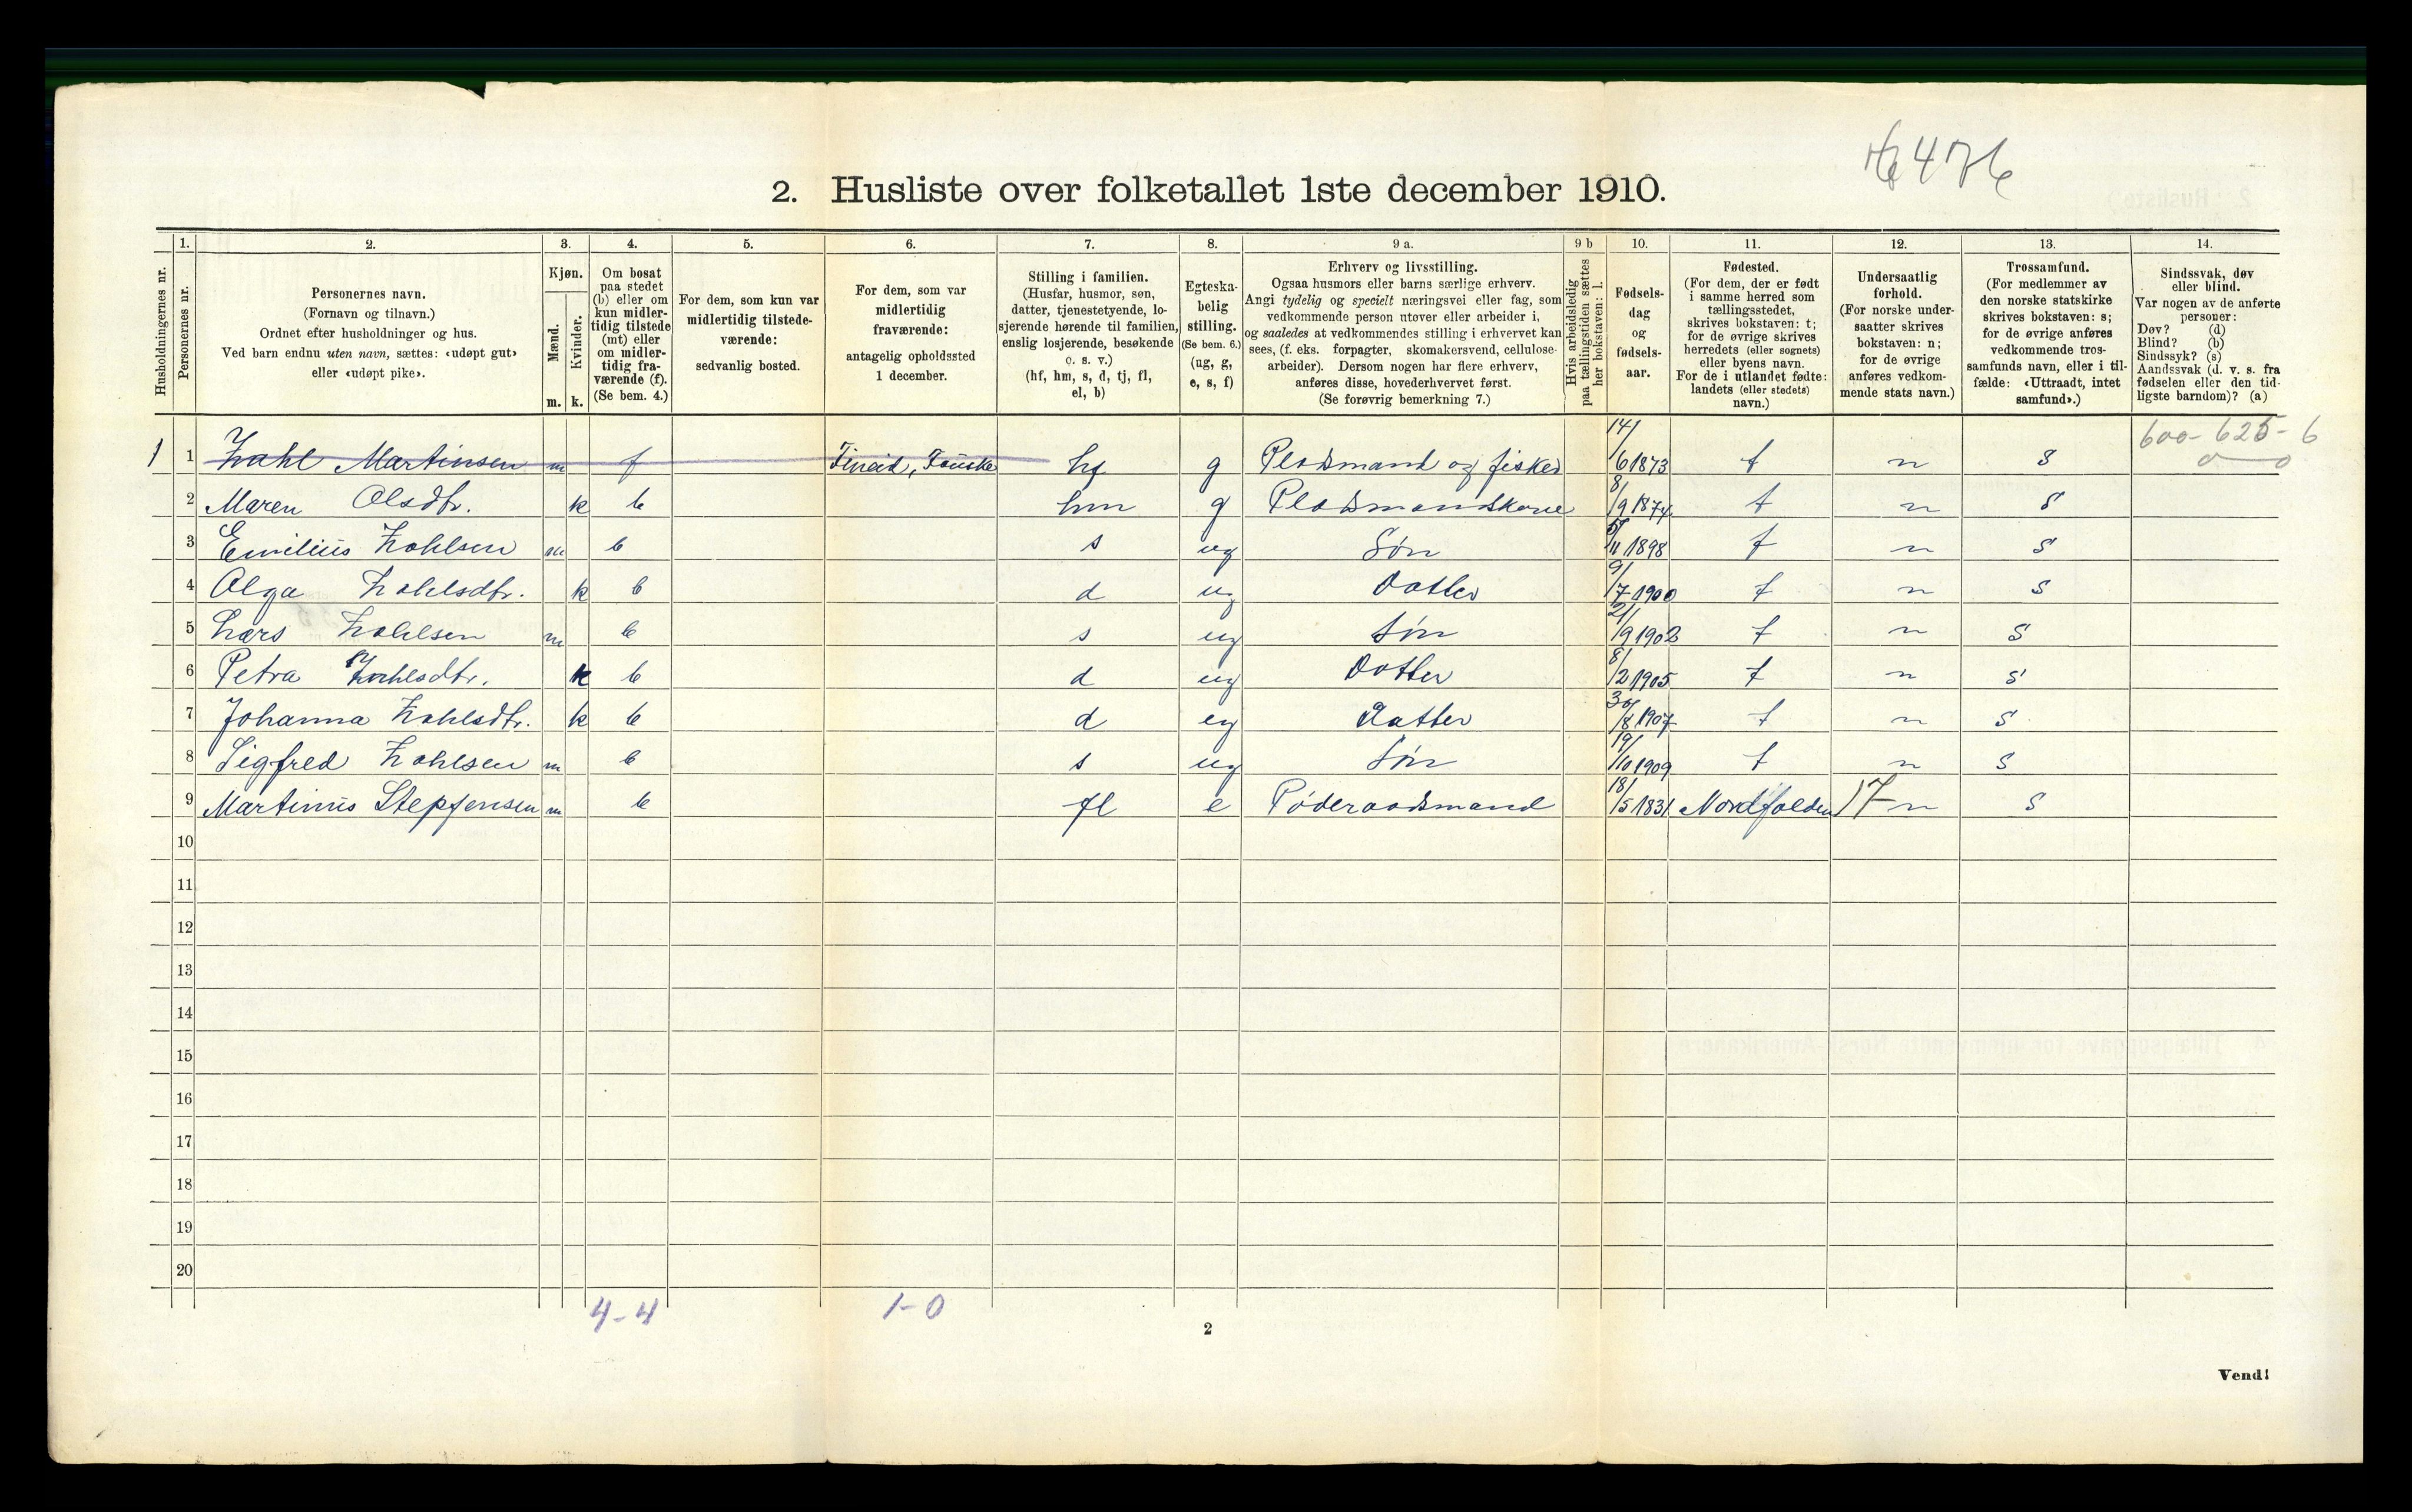 6476
2. Husliste over folketallet 1ste december 1910.
1. 2. 3. 4. 5. 6. 7. 8. 9 a. 9 b 10. 11. 12. 13. 14.
Husholdningernes nr.
Personernes nr.
Personernes navn.
(Fornavn og tilnavn.)
Ordnet efter husholdninger og hus.
Ved barn endnu uten navn, sættes: «udøpt gut»
eller «udøpt pike».
Kjøn.
Mænd.
Kvinder.
m. k.
Om bosat
paa stedet
(b) eller om
kun midler-
tidig tilstede
(mt) eller
om midler-
tidig fra-
værende (f).
(Se bem. 4.)
For dem, som kun var
midlertidig tilstede-
værende:
sedvanlig bosted.
For dem, som var
midlertidig
fraværende:
antagelig opholdssted
1 december.
Stilling i familien.
(Husfar, husmor, søn,
datter, tjenestetyende, lo-
sjerende hørende til familien,
enslig losjerende, besøkende
o. s. v.)
(hf, hm, s, d, tj, fl,
el, b)
Egteska-
belig
stilling.
(Se bem. 6.)
(ug, g,
e, s, f)
Erhverv og livsstilling.
Ogsaa husmors eller barns særlige erhverv.
Angi tydelig og specielt næringsvei eller fag, som
vedkommende person utøver eller arbeider i,
og saaledes at vedkommendes stilling i erhvervet kan
sees, (f. eks. forpagter, skomakersvend, cellulose-
arbeider). Dersom nogen har flere erhverv,
anføres disse, hovederhvervet først.
(Se forøvrig bemerkning 7.)
Hvis arbeidsledig
paa tællingstiden sættes
her bokstaven: l.
Fødsels-
dag
og
fødsels-
aar.
Fødested.
(For dem, der er født
i samme herred som
tællingsstedet,
skrives bokstaven: t;
for de øvrige skrives
herredets (eller sognets)
eller byens navn.
For de i utlandet fødte:
landets (eller stedets)
navn.)
Undersaatlig
forhold.
(For norske under-
saatter skrives
bokstaven: n;
for de øvrige
anføres vedkom-
mende stats navn.)
Trossamfund.
(For medlemmer av
den norske statskirke
skrives bokstaven: s;
for de øvrige anføres
vedkommende tros-
samfunds navn, eller i til-
fælde: «Uttraadt, intet
samfund».)
Sindssvak, døv
eller blind.
Var nogen av de anførte
personer:
Døv? (d)
Blind? (b)
Sindssyk? (s)
Aandssvak (d. v. s. fra
fødselen eller den tid-
ligste barndom)? (a)
600-625-6
0 0
1 1 Zahl Martinsen m f Fineid, Fauske hf g Pladsmand og fisker 14/6 1873 t n s
2 Maren Olsdtr. k b hm g Pladsmandskone 8/9 1874 t n s
3 Emilius Zahlsen m b s ug Søn 5/11 1898 t n s
4 Olga Zahlsdtr. k b d ug Datter 9/7 1900 t n s
5 Lars Zahlsen m b s ug Søn 21/9 1902 t n s
6 Petra Zahlsdtr. k b d ug Datter 8/2 1905 t n s
7 Johanna Zahlsdtr. k b d ug Datter 30/8 1907 t n s
8 Sigfred Zahlsen m b s ug Søn 19/10 1909 t n s
9 Martinus Stepfensen m b fl e Føderaadsmand 18/5 1831 Nordfolden 17 n s
10
11
12
13
14
15
16
17
18
19
20
4-4 1-0
2
Vend!